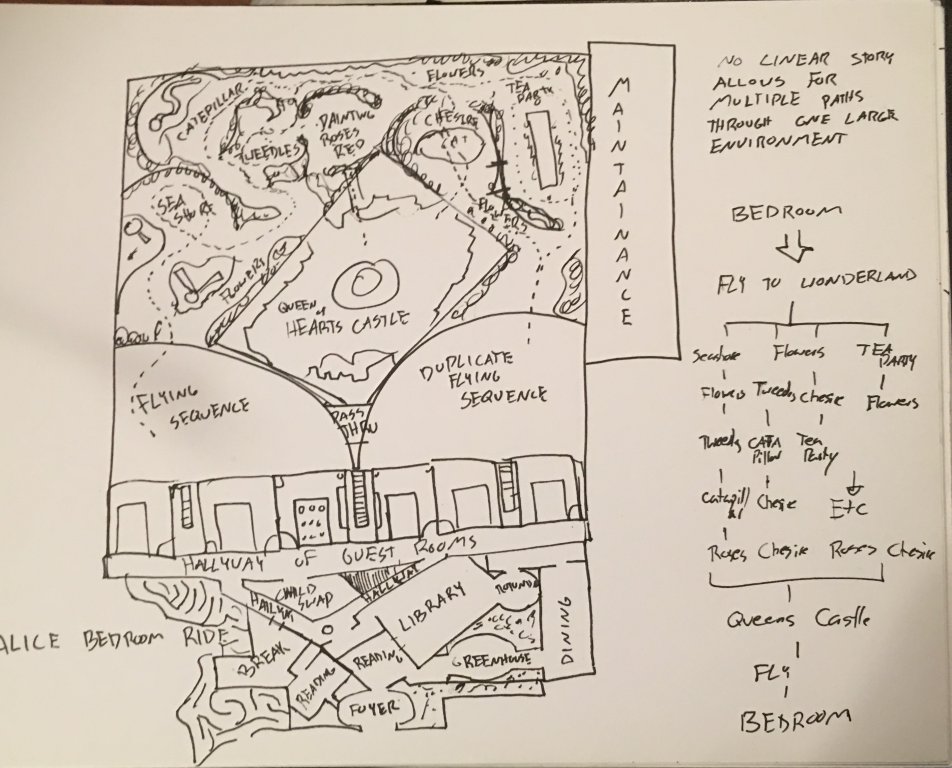 FLOWERS
CATEPILLAR
TEA
PARTY
PAINTING
ROSES
RED
CHESIRE
CAT
TWEEDLES
SEA
SHORE
FLOWERS
FLOWERS
QUEEN
OF
HEARTS CASTLE
MAINTAINANCE
FLYING
SEQUENCE
DUPLICATE
FLYING
SEQUENCE
PASS
THRU
HALLWAY OF GUEST ROOMS
CHILD
SWAP
HALLWAY
HALLWAY
LIBRARY
ROTUNDA
DINING
ALICE BEDROOM RIDE
BREAK
READING
READING
GREENHOUSE
FOYER
NO LINEAR STORY
ALLOWS FOR
MULTIPLE PATHS
THROUGH ONE LARGE
ENVIRONMENT
BEDROOM
FLY TO WONDERLAND
Seashore Flowers TEA
PARTY
Flowers Tweeds Chesire Flowers
Tweeds CATA Tea
Pillar Party
Catapill
ar Chesire Etc
Roses Chesire Roses Chesire
Queens Castle
FLY
BEDROOM